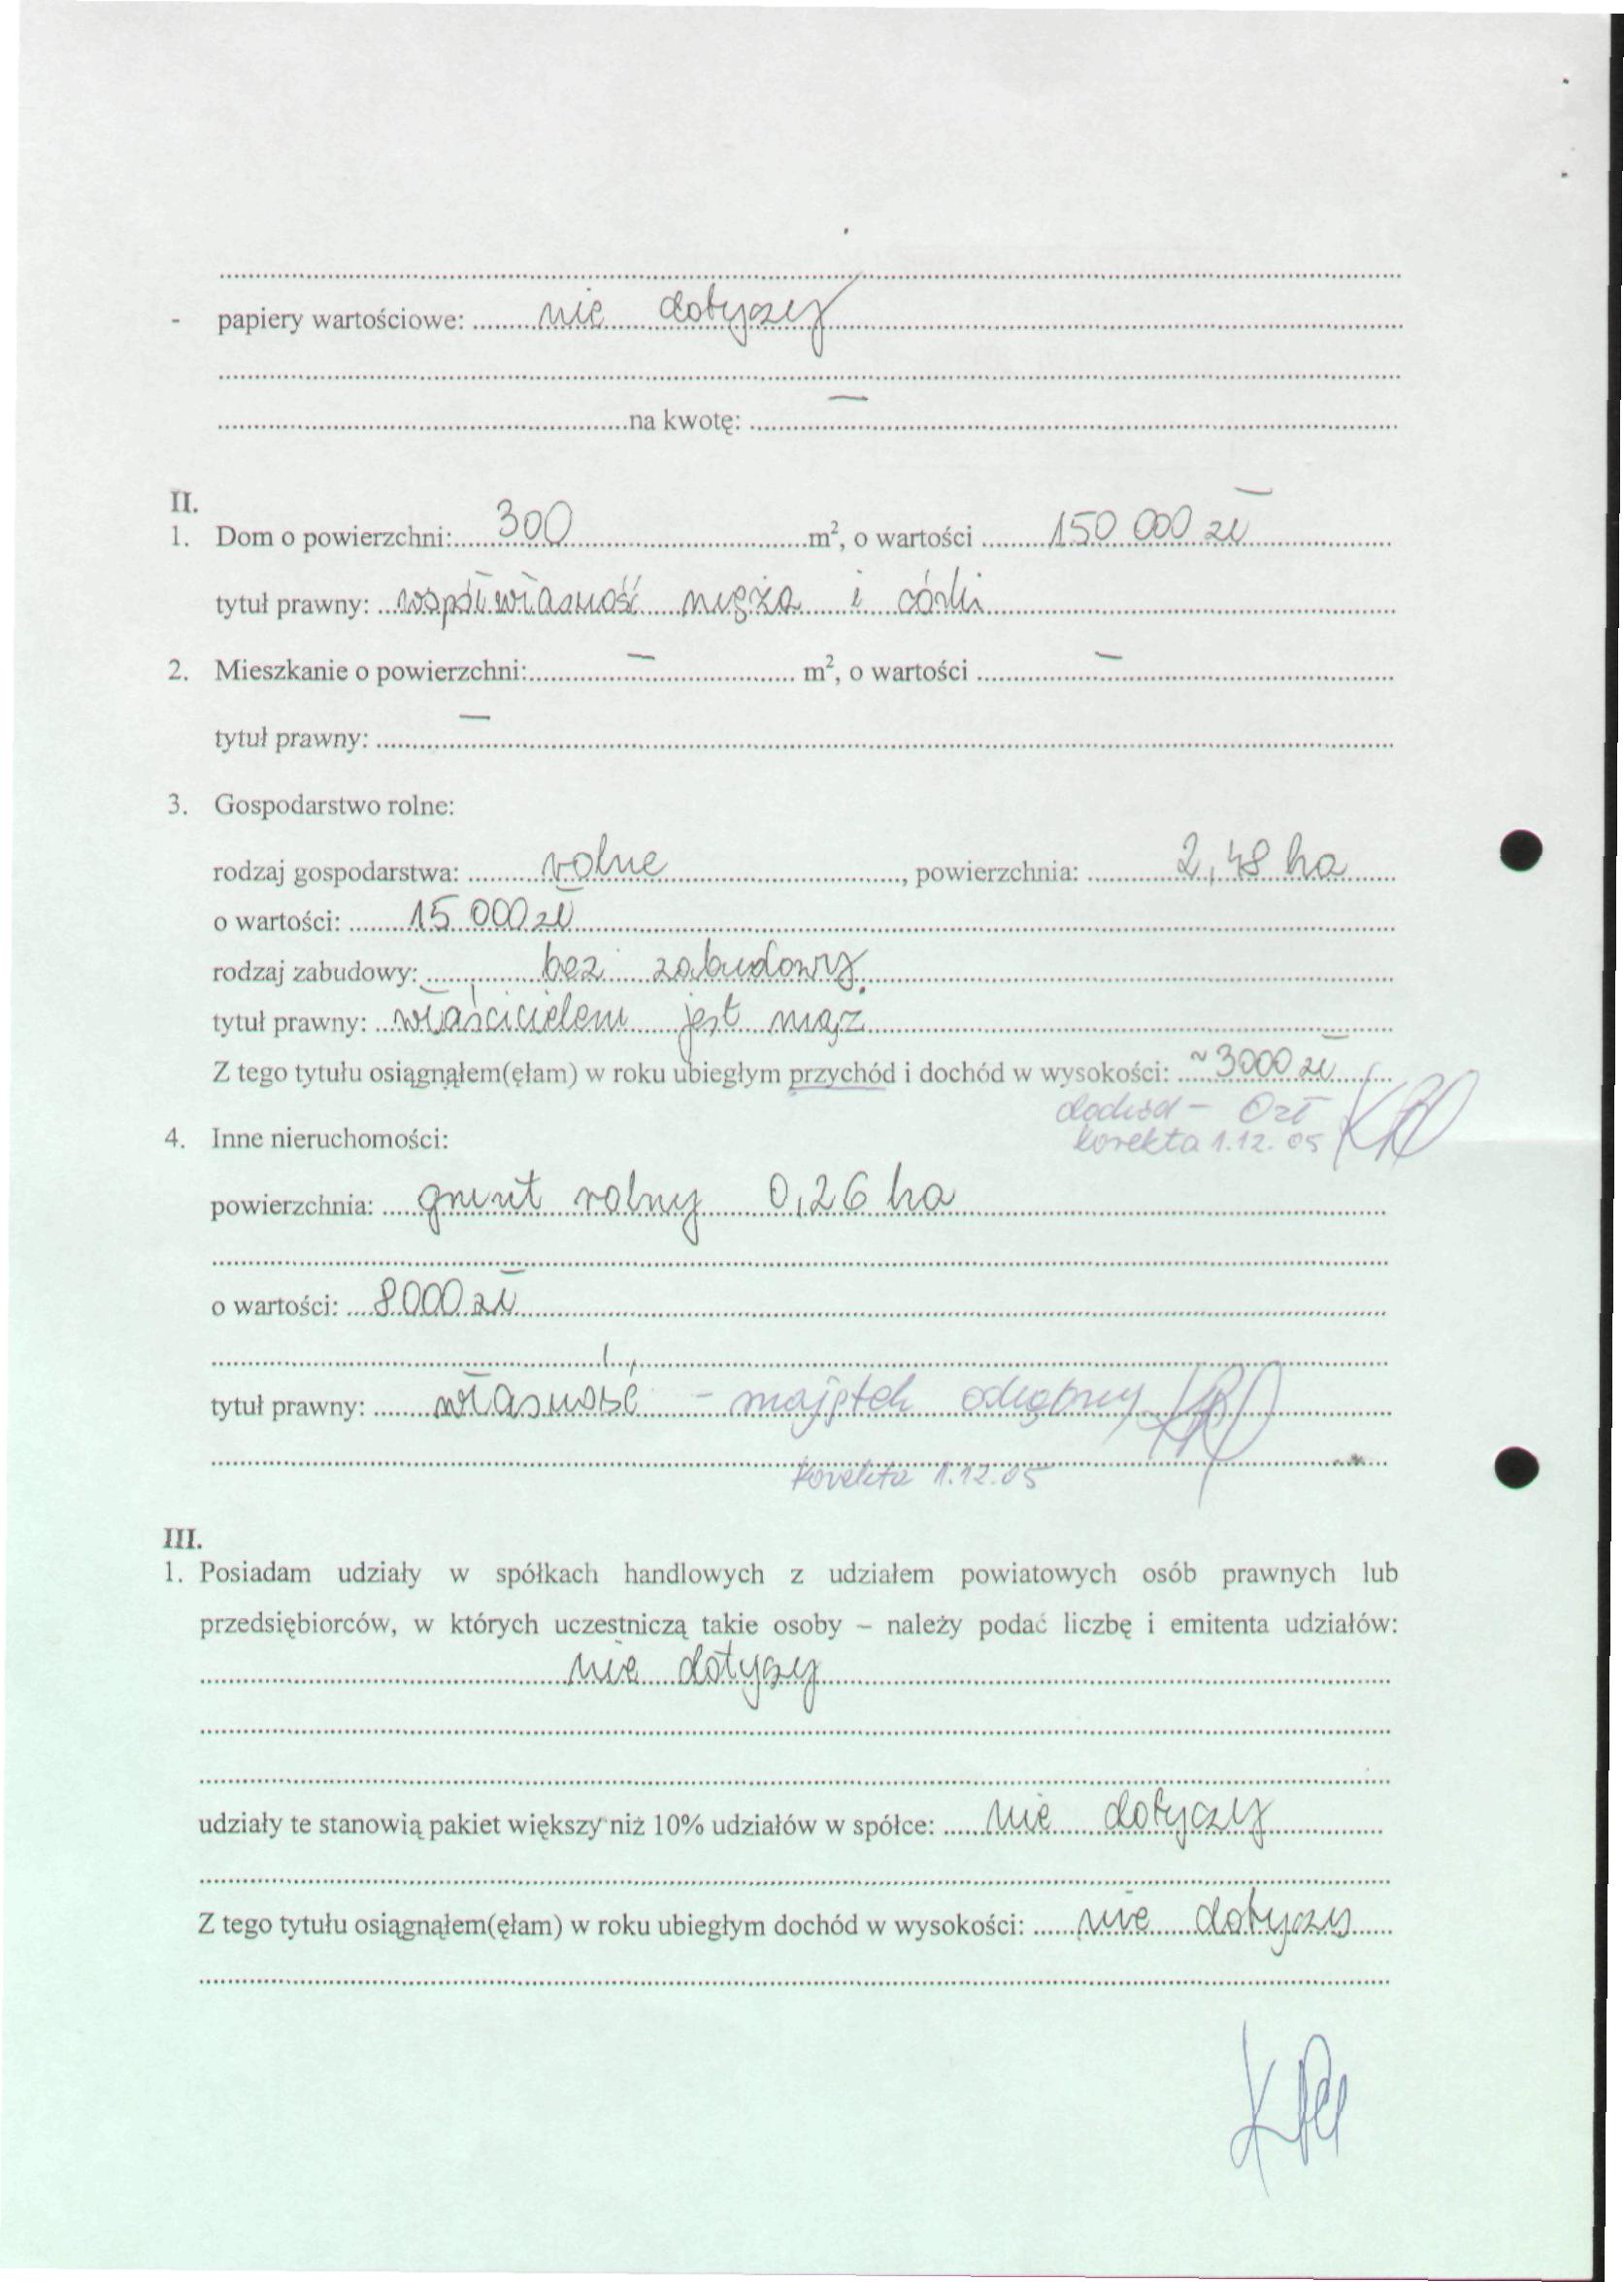 - papiery wartościowe: nie dotyczy
na kwotę: —
II.
1. Dom o powierzchni: 300 m², o wartości 150 000 zł
tytuł prawny: współwłasność męża i córki
2. Mieszkanie o powierzchni: — m², o wartości —
tytuł prawny: —
3. Gospodarstwo rolne:
rodzaj gospodarstwa: rolne, powierzchnia: 2,48 ha
o wartości: 15 000 zł
rodzaj zabudowy: bez zabudowy
tytuł prawny: właścicielem jest mąż
Z tego tytułu osiągnąłem(ęłam) w roku ubiegłym przychód i dochód w wysokości: ~3000 zł
dochód – 0 zł
korekta 1.12.05
4. Inne nieruchomości:
powierzchnia: grunt rolny 0,26 ha
o wartości: 8000 zł
tytuł prawny: własność – majątek odrębny
korekta 1.12.05
III.
1. Posiadam udziały w spółkach handlowych z udziałem powiatowych osób prawnych lub
przedsiębiorców, w których uczestniczą takie osoby – należy podać liczbę i emitenta udziałów:
nie dotyczy
udziały te stanowią pakiet większy niż 10% udziałów w spółce: nie dotyczy
Z tego tytułu osiągnąłem(ęłam) w roku ubiegłym dochód w wysokości: nie dotyczy